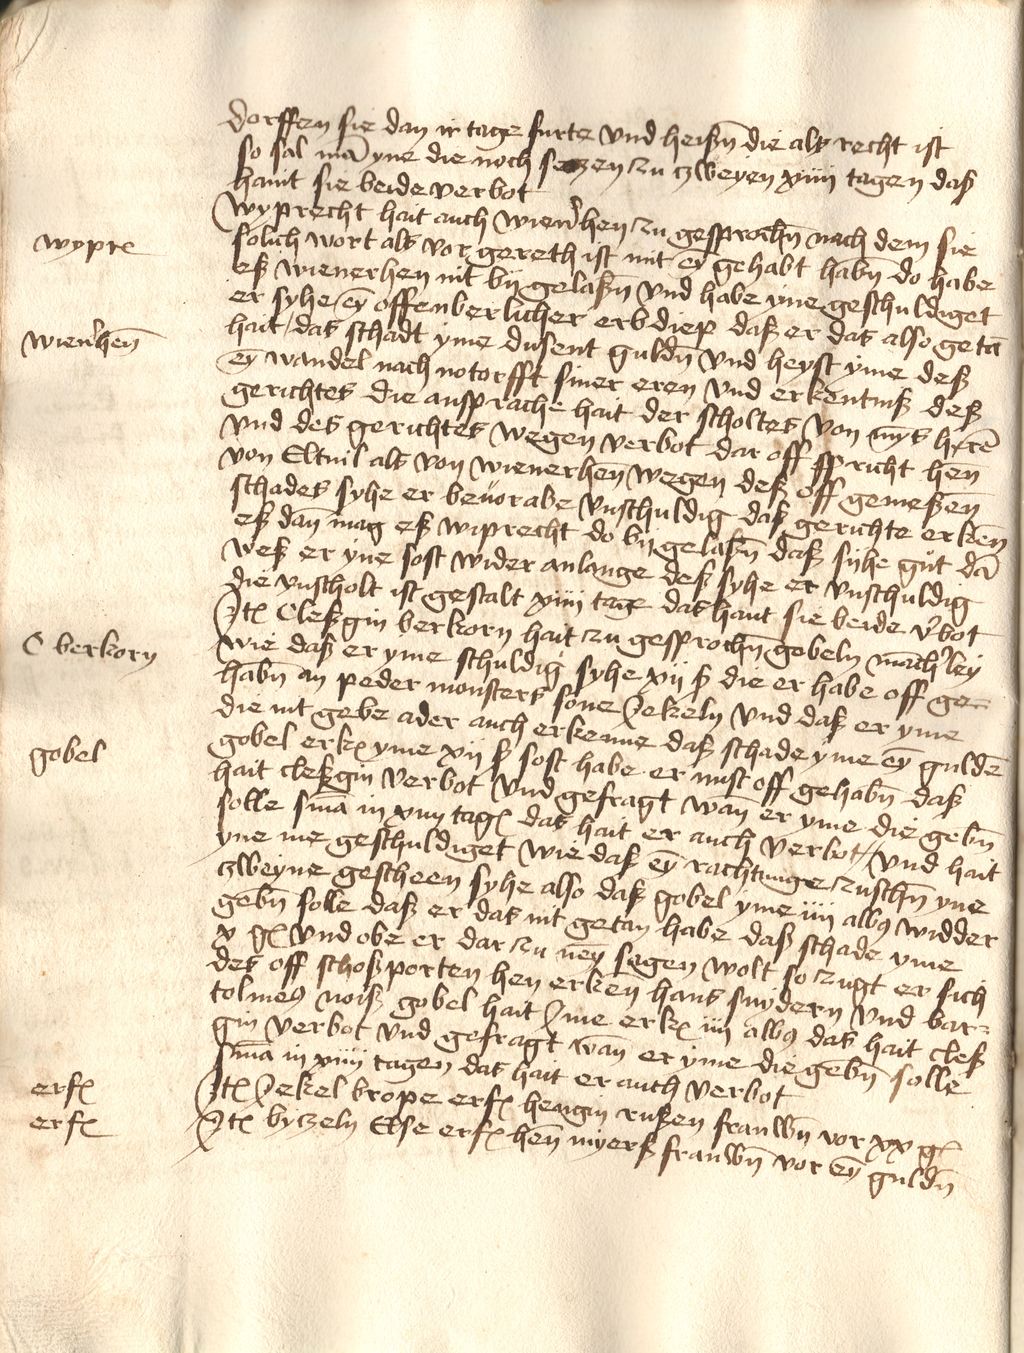 dorffen sie dan ir tage furte vnd heißn̄ die als recht ist
so sal mā yne die noch setzen zu zweyen xiiii tagen daß
haint sie beide verbot
wyprecht hait auch wien'hen zu gesprochn̄ nach dem sie
wyprℓ
solich wort als vor gereth ist mit ey̅ gehabt habn̄ do habe
eß wienerhen nit by gelaßn̄ vnd habe yne geschuldiget
er syhe ey̅ offenberlicher erbdiep daß er das also getā
wien'hen̄
hait / das schadt yme dusent guldn̄ vnd heyst yme deß
ey̅ wandel nach notorfft siner eren vnd erkentniß deß
gerichtes die ansprache hait der scholtes von mȳs herē
vnd des gerichtes wegen verbot dar off spricht hen̄
von Eltuil als von wienerhen̄ wegen deß off gemeßen̄
schades syhe er beuorabe vnschuldig daß gerichte erken̄
eß dan̄ mag eß wiprecht do by gelaßn̄ daß syhe gut dā
weß er yne sost wider anlange deß syhe er vnschuldig
die vnscholt ist gestalt xiiii tage das haint sie beide v'bot
Itℓ Cleßgin berkorn hait zu gesprochn̄ gobeln mach'ley
C berkorn
wie daß er yme schuldig syhe xij ß die er habe off ge-
habn̄ an peder monsters sone Jekeln vnd daß er yme
die nit gebe ader auch erkenne daß schade yme ey̅ guldē
gobel
gobel erkℓ yme xij ß sost habe er nust off gehabn̄ daß
hait cleßgin verbot vnd gefragt wan̄ er yme die gebn̄
solle sm̄a in xiiii tagℓ das hait er auch verbot / vnd hait
yne me geschuldiget wie daß ey̅ rachtunge zuschn̄ yne
zweyne gescheen syhe also daß gobel yme iiii albꝯ widder
gebn̄ solle daß er das nit getan habe daß schade yme
x gℓ vnd obe er dar zu ney̅ sagen wolt so zugt er sich
des off schoßporten hen erken hans snydern vnd bar-
tolmeꝯ noiß gobel hait Ime erkℓ iiii albꝯ das hait cleß
gin verbot vnd gefragt wan̄ er yme die gebn̄ solle
sm̄a in xiiii tagen das hait er auch verbot
erfℓ
Itℓ Jekel krope erfℓ hengin rußen frauwn̄ vor xx gℓ
erfℓ
Itℓ byczeln Else erfℓ hen̄ myerß frauwn̄ vor ey̅ guldn̄